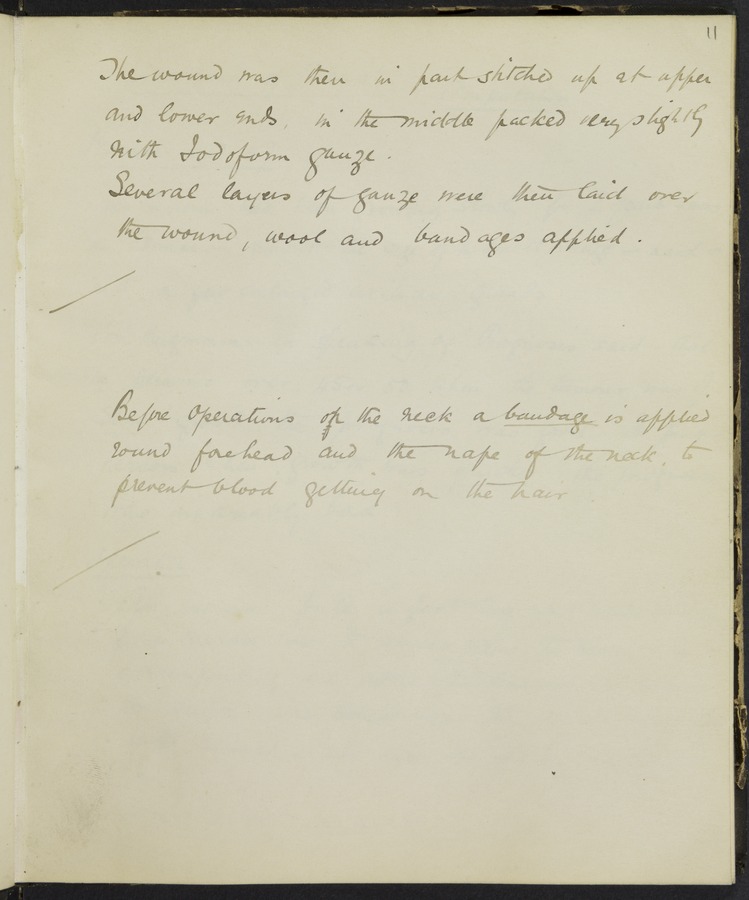 11
The wound was then in part stitched up at upper
and lower ends, in the middle packed very slightly
with Iodoform gauze.
Several layers of gauze were then laid over
the wound, wool and bandages applied.
Before Operations on the neck a bandage is applied
round forehead and the nape of the neck, to
prevent blood getting on the hair.